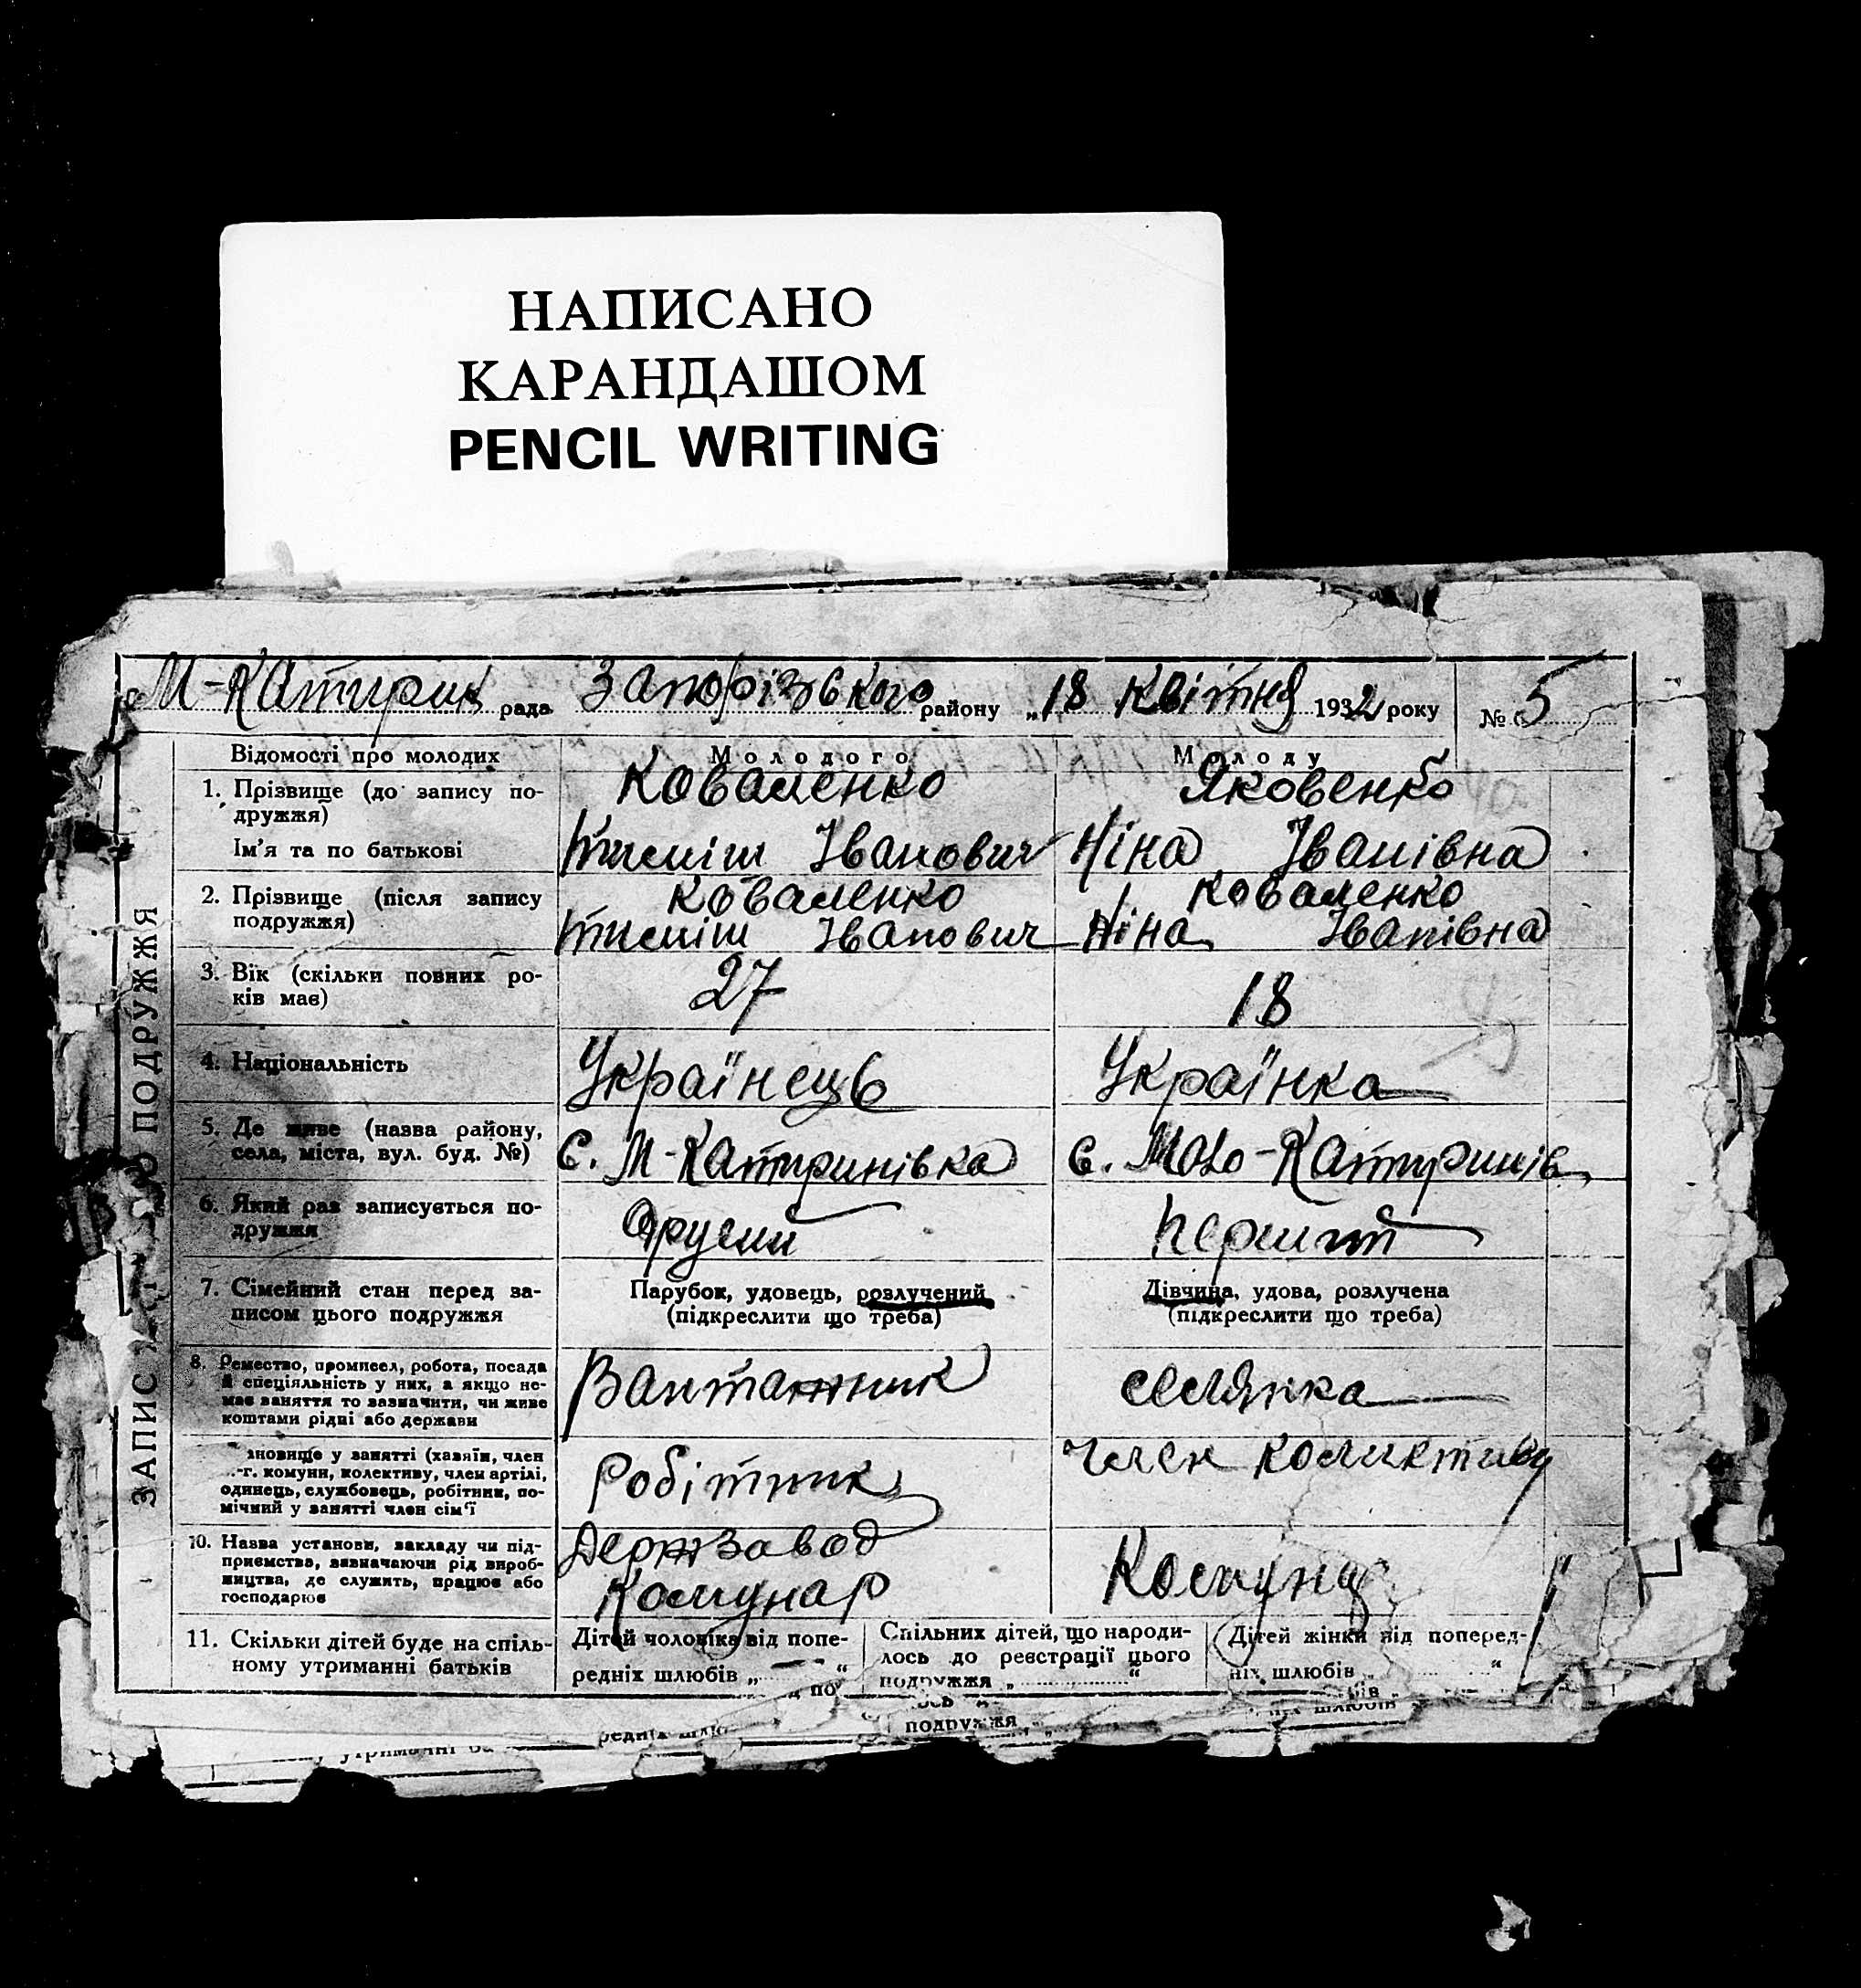 НАПИСАНО
КАРАНДАШОМ
PENCIL WRITING
М-Катирин рада Запорізького району „18 Квітня 1932 року № 5
Відомості про молодих Молодого Молоду
1. Прізвище (до запису по- Коваленко Яковенко
дружжя)
Ім'я та по батькові Тиміш Іванович Ніна Іванівна
2. Прізвище (після запису Коваленко Коваленко
подружжя) Тиміш Іванович Ніна Іванівна
3. Вік (скільки повних ро- 27 18
ків має)
4. Національність Українець Українка
5. Де живе (назва району,
села, міста, вул. буд. №) с. М-Катиринівка с. Мало-Катиринів
6. Який раз записується по- Другий
дружжя
7. Сімейний стан перед за- Парубок, удовець, розлучений Дівчина, удова, розлучена
писом цього подружжя (підкреслити що треба) (підкреслити що треба)
8. Ремество, промисел, робота, посада
й спеціяльність у них, а якщо не- Вантажник селянка
має заняття то зазначити, чи живе
коштами рідні або держави
ановище у занятті (хазяїн, член член колективу
.-г. комуни, колективу, член артілі, Робітник
одинець, службовець, робітник, по-
мічний у занятті член сім'ї
10. Назва установи, закладу чи під- Держзавод
приємства, визначаючи рід вироб-
ництва, де служить, працює або Комунар
господарює
11. Скільки дітей буде на спіль- Дітей чоловіка від попе- Спільних дітей, що народи- Дітей жінки від поперед-
ному утриманні батьків редніх шлюбів „ — “ лось до реєстрації цього ніх шлюбів „ “
подружжя „ “
подружжя
ЗАПИС ПРО ПОДРУЖЖЯ